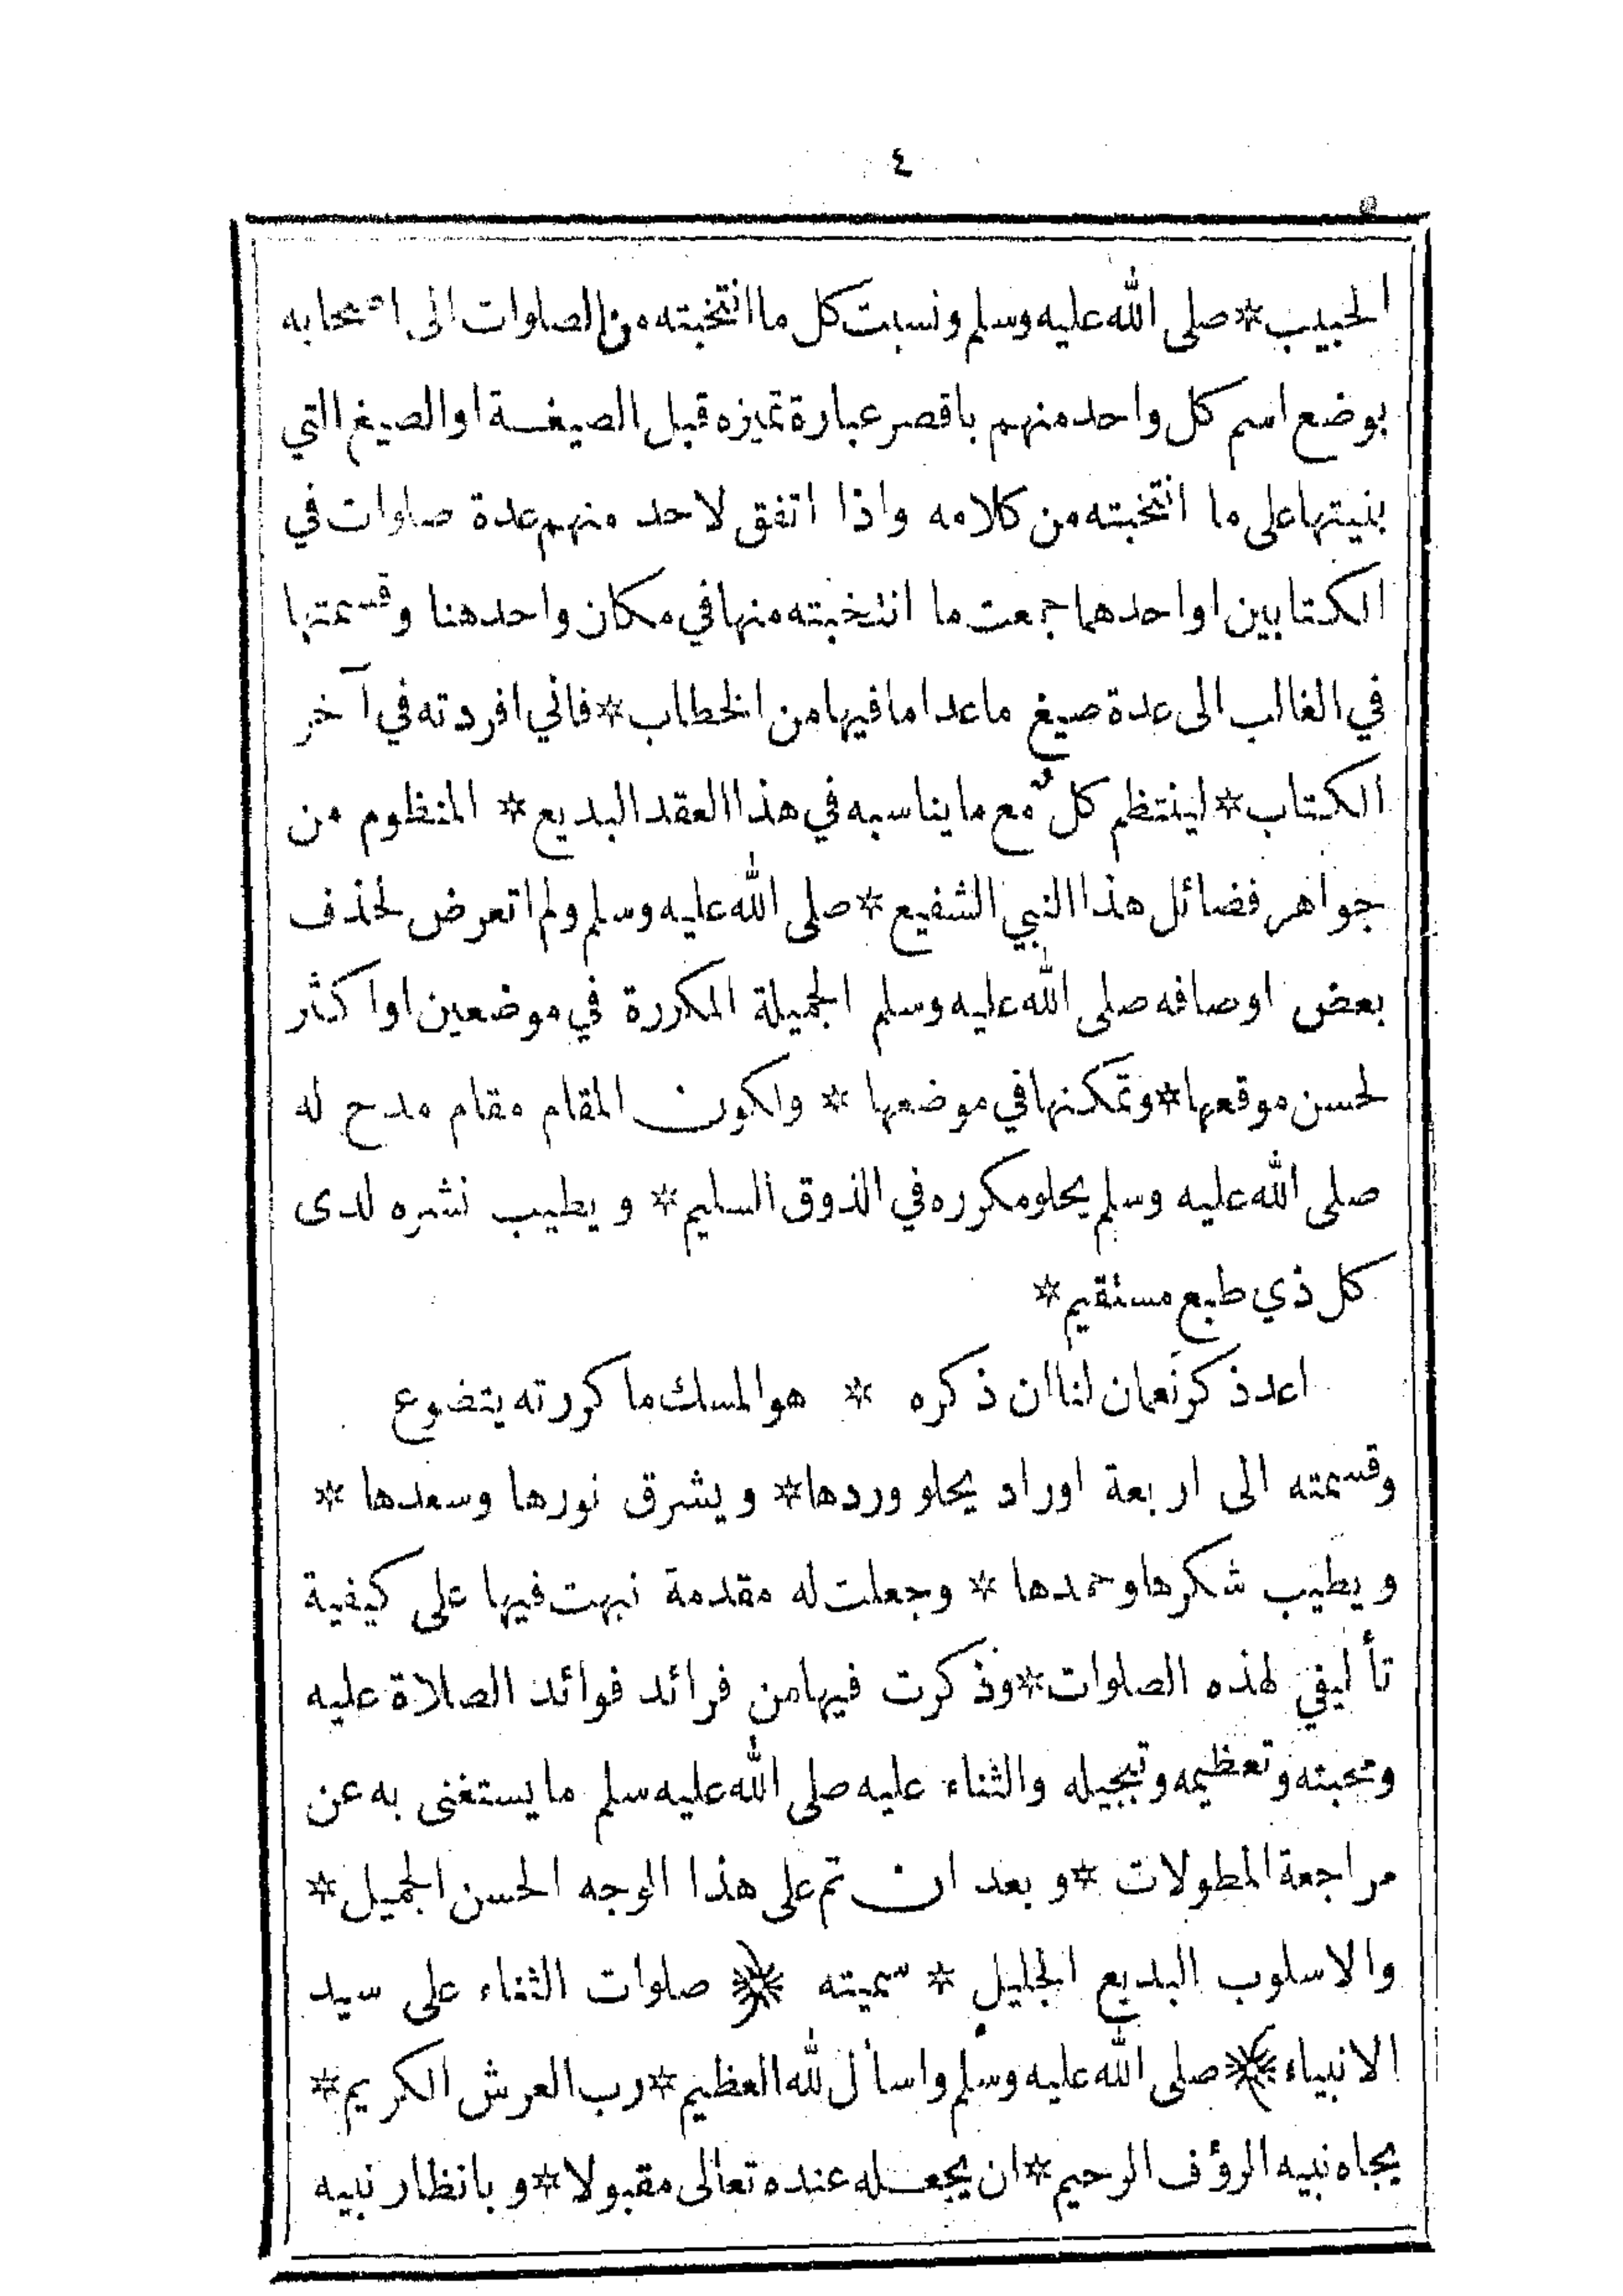 ٤
الحبيب * صلى الله عليه وسلم ونسبت كل ما انتخبته من الصلوات الى اصحابه
بوضع اسم كل واحد منهم باقصر عبارة تميزه قبل الصيغة او الصيغ التي
بنيتها على ما انتخبته من كلامه واذا اتفق لاحد منهم عدة صلوات في
الكتابين او احدهما جمعت ما انتخبته منها في مكان واحد هنا وقسمتها
في الغالب الى عدة صيغ ما عدا ما فيها من الخطاب * فاني افردته في آخر
الكتاب * لينتظم كلٌ مع ما يناسبه في هذا العقد البديع * المنظوم من
جواهر فضائل هذا النبي الشفيع * صلى الله عليه وسلم ولم اتعرض لحذف
بعض اوصافه صلى الله عليه وسلم الجميلة المكررة في موضعين او اكثر
لحسن موقعها * وتمكنها في موضعها * ولكون المقام مقام مدح له
صلى الله عليه وسلم يحلو مكرره في الذوق السليم * ويطيب نشره لدى
كل ذي طبع مستقيم *
اعد ذكر نَعمان لنا ان ذكره * هو المسك ما كررته يتضوع
وقسمته الى اربعة اوراد يحلو وردها * ويشرق نورها وسعدها *
ويطيب شكرها وحمدها * وجعلت له مقدمة نبهت فيها على كيفية
تأليفي لهذه الصلوات * وذكرت فيها من فرائد فوائد الصلاة عليه
ومحبته وتعظيمه وتبجيله والثناء عليه صلى الله عليه سلم ما يستغنى به عن
مراجعة المطولات * وبعد ان تم على هذا الوجه الحسن الجميل *
والاسلوب البديع الجليل * سميته * صلوات الثناء على سيد
الانبياء * صلى الله عليه وسلم واسأل لله العظيم * رب العرش الكريم *
بجاه نبيه الرؤف الرحيم * ان يجعله عنده تعالى مقبولا * وبانظار نبيه